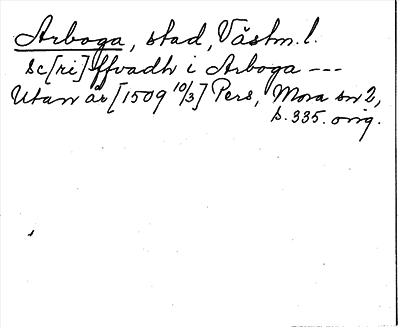 Arboga, stad, Västm. l.
sc[ri]ffvadh i Arboga ---
Utan år [1509 10/3] Pers, Mora sn 2,
s. 335. orig.